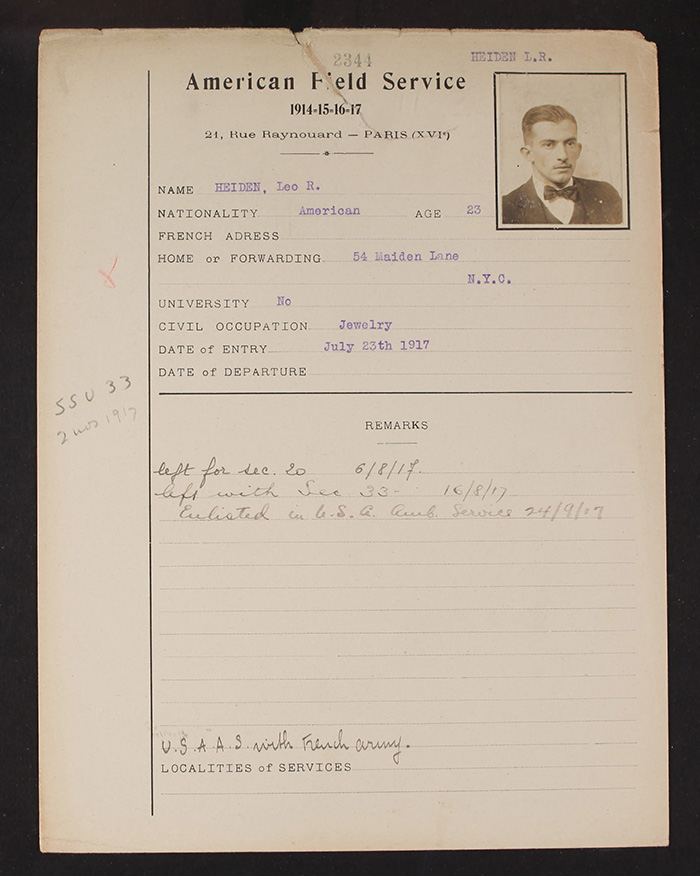 2344
HEIDEN L.R.
American Field Service
1914-15-16-17
21, Rue Raynouard — PARIS (XVIe)
NAME HEIDEN, Leo R.
NATIONALITY American AGE 23
FRENCH ADRESS
HOME or FORWARDING 54 Maiden Lane
N.Y.C.
UNIVERSITY No
CIVIL OCCUPATION Jewelry
DATE of ENTRY July 23th 1917
DATE of DEPARTURE
SSU 33
2 nov 1917
REMARKS
left for sec. 20 6/8/17.
left with Sec 33- 16/8/17
Enlisted in U.S.A. Amb. Service 24/9/17
U.S.A.A.S with French army.
LOCALITIES of SERVICES